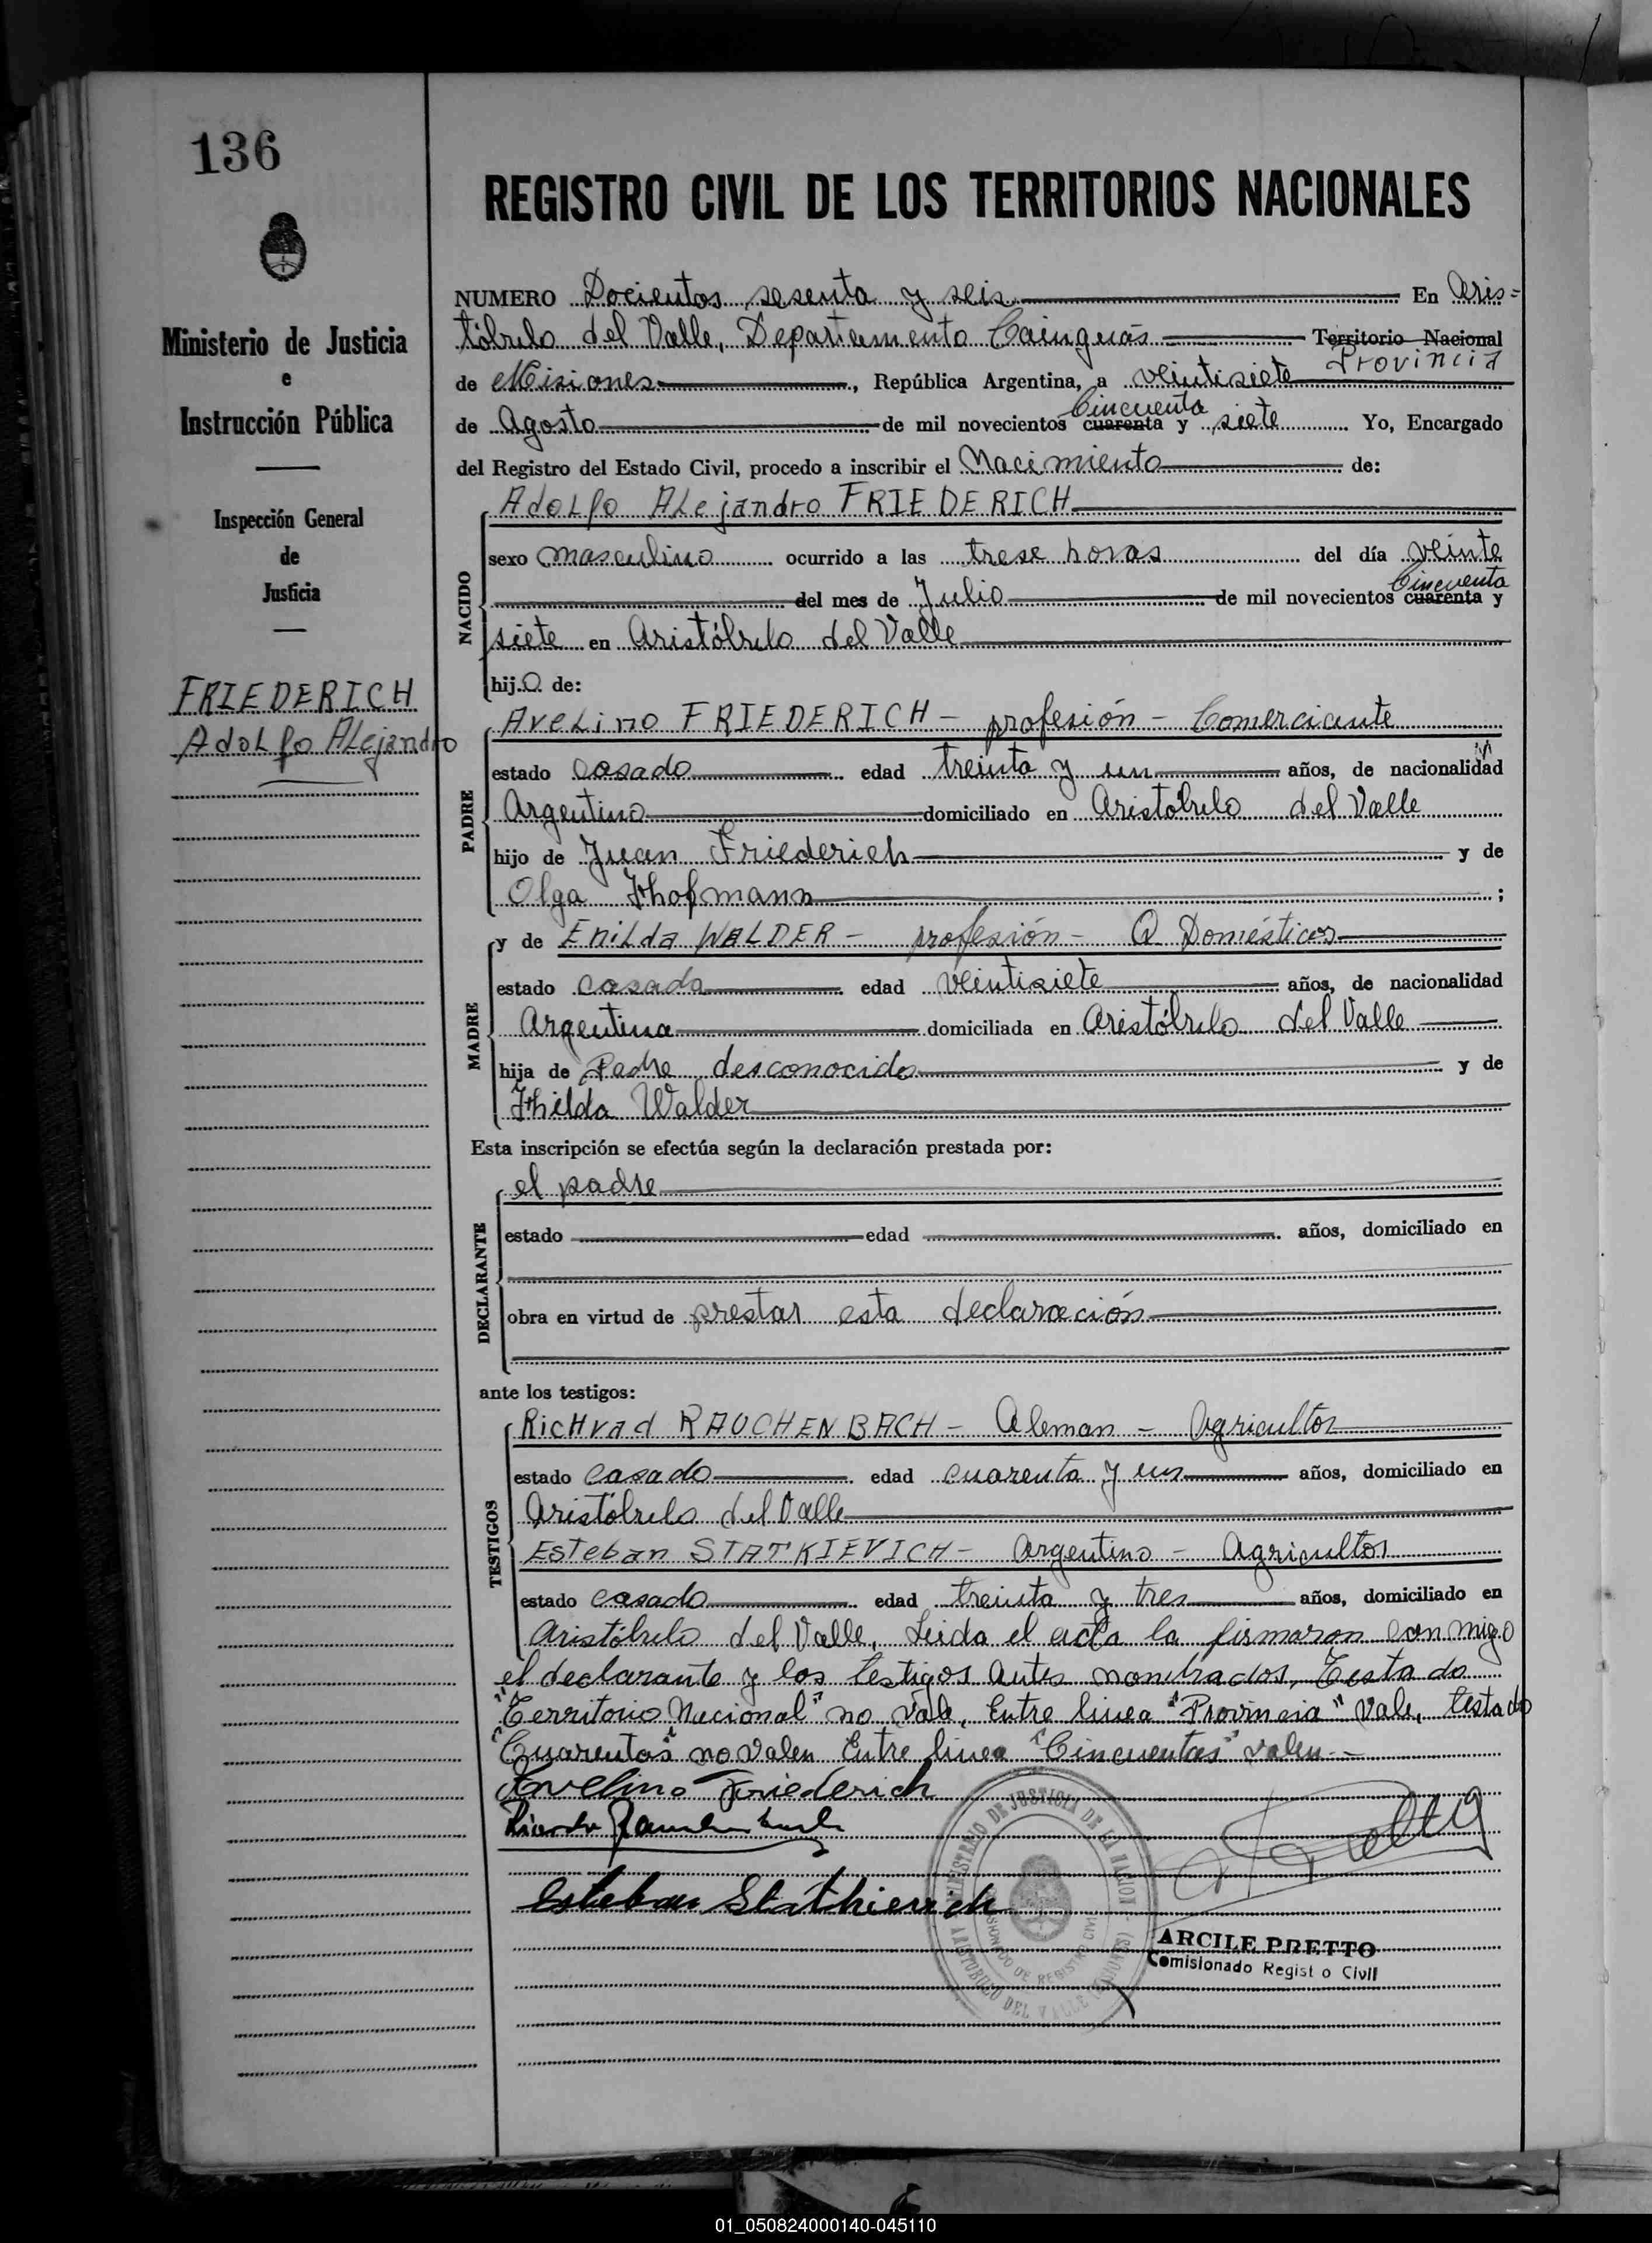 136
REGISTRO CIVIL DE LOS TERRITORIOS NACIONALES
Ministerio de Justicia
e
Instrucción Pública
Inspección General
de
Justicia
FRIEDERICH
Adolfo Alejandro
NUMERO Docientos sesenta y seis En Aris=
tóbulo del Valle, Departamento Cainguás Territorio Nacional
Provincia
de Misiones, República Argentina, a veintisiete
Cincuenta
de Agosto de mil novecientos cuarenta y siete Yo, Encargado
del Registro del Estado Civil, procedo a inscribir el Nacimiento de:
Adolfo Alejandro FRIEDERICH
NACIDO
sexo masculino ocurrido a las trese horas del día veinte
Cincuenta
del mes de Julio de mil novecientos cuarenta y
siete en Aristóbulo del Valle
hijo de:
PADRE
Avelino FRIEDERICH - profesión - Comerciante
estado Casado edad treinta y un años, de nacionalidad
Argentino domiciliado en Aristóbulo del Valle
hijo de Juan Friederich y de
Olga Hhofmann ;
MADRE
y de Enilda WALDER - profesión - Q Domésticos
estado casada edad veintisiete años, de nacionalidad
Argentina domiciliada en Aristóbulo del Valle
hija de Padre desconocido y de
Hhilda Walder
Esta inscripción se efectúa según la declaración prestada por:
DECLARANTE
el padre
estado edad años, domiciliado en
obra en virtud de prestar esta declaración
ante los testigos:
TESTIGOS
Richrad RAUCHENBACH - Aleman - Agricultor
estado Casado edad cuarenta y un años, domiciliado en
Aristóbulo del Valle
Esteban STATKIEVICH - Argentino - Agricultor
estado casado edad treinta y tres años, domiciliado en
Aristóbulo del Valle, Leida el acta la firmaron con migo
el declarante y los testigos antes nombrados, Testado
"Territorio Nacional" no vale, Entre linea "Provincia" Vale, testado
"Cuarentas" no valen Entre linea "Cincuentas" valen -
Avelino Friederich
Esteban Statkievich
MINISTERIO DE JUSTICIA DE LA NACION
ARISTOBULO DEL VALLE (MISIONES)
DE REGISTRO CIVIL
ARCILE PRETTO
Comisionado Regist o Civil
01_050824000140-045110